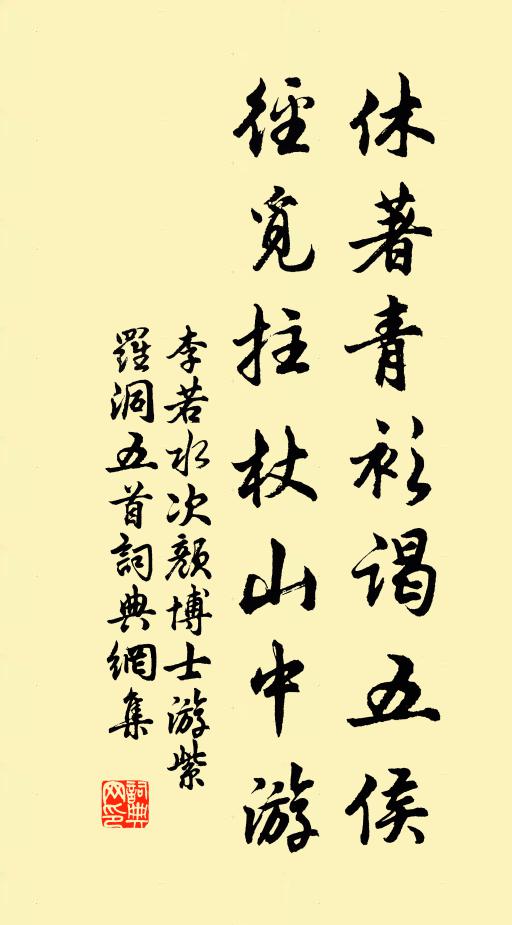 休著青衫謁五侯
徑覓拄杖山中游
李若水次顏博士游紫
羅洞五首詞典網集
詞典
网印